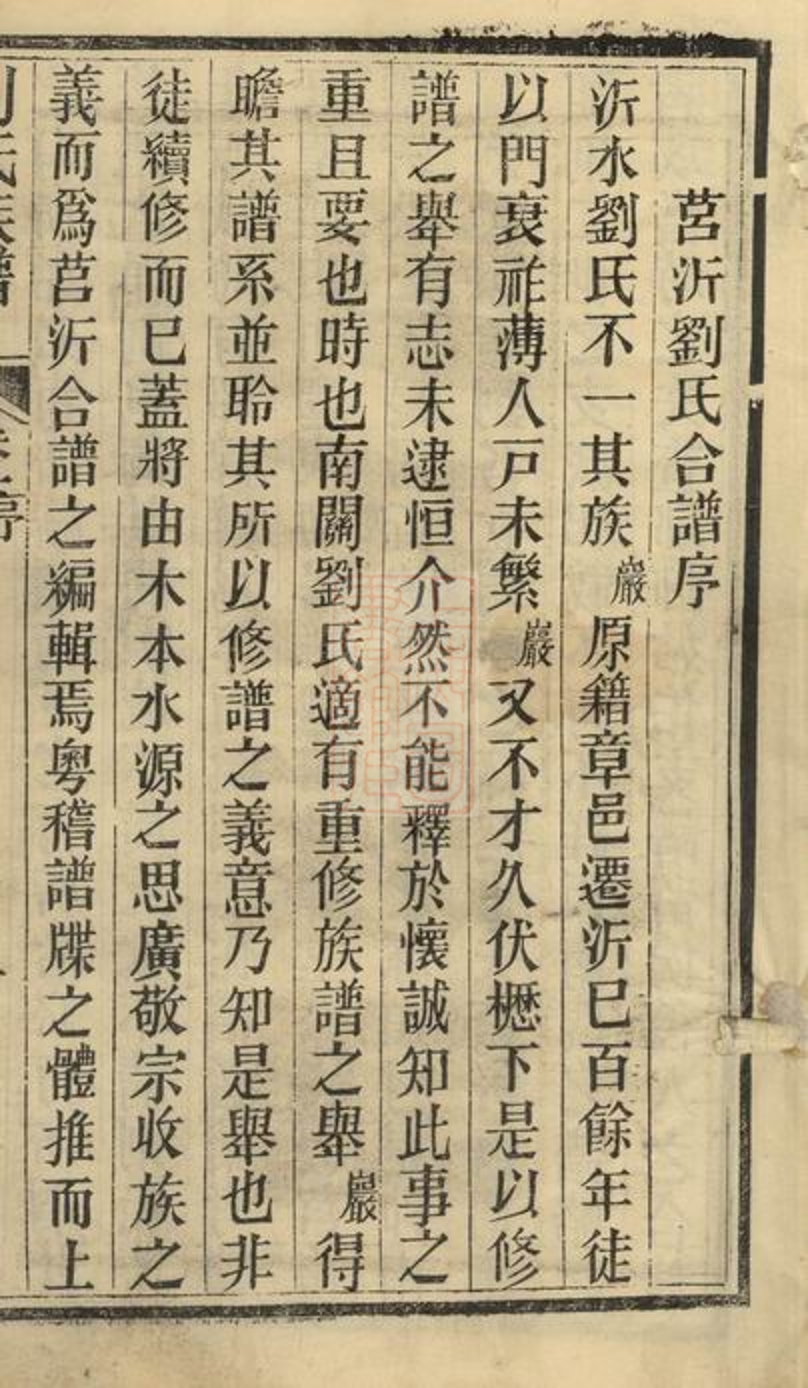 莒沂劉氏合譜序
沂水劉氏不一其族巖原籍章邑遷沂巳百餘年徒
以門衰祚薄人戸未繁巖又不才久伏櫪下是以修
譜之舉有志未逮恒介然不能釋於懷誠知此事之
重且要也時也南關劉氏適有重修族譜之舉巖得
瞻其譜系並聆其所以修譜之義意乃知是舉也非
徒續修而巳蓋將由木本水源之思廣敬宗收族之
義而爲莒沂合譜之編輯焉粤稽譜牒之體推而上